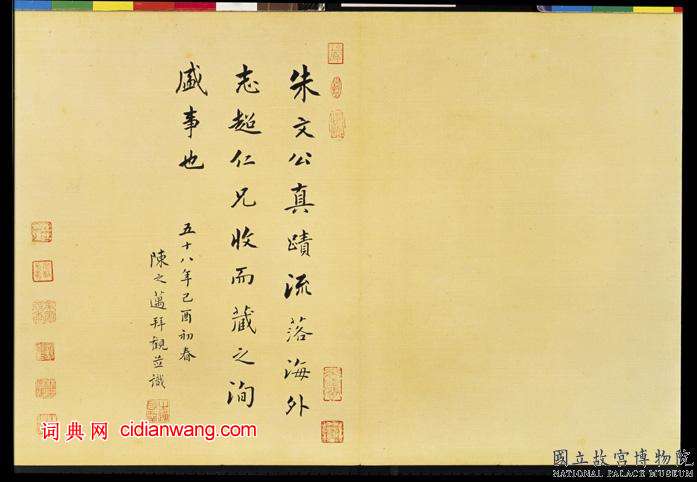 朱文公真蹟流落海外
志超仁兄收而藏之洵
盛事也
五十八年己酉初春
陳之邁拜觀並識
词典网 cidianwang.com
國立故宮博物院
NATIONAL PALACE MUSEUM